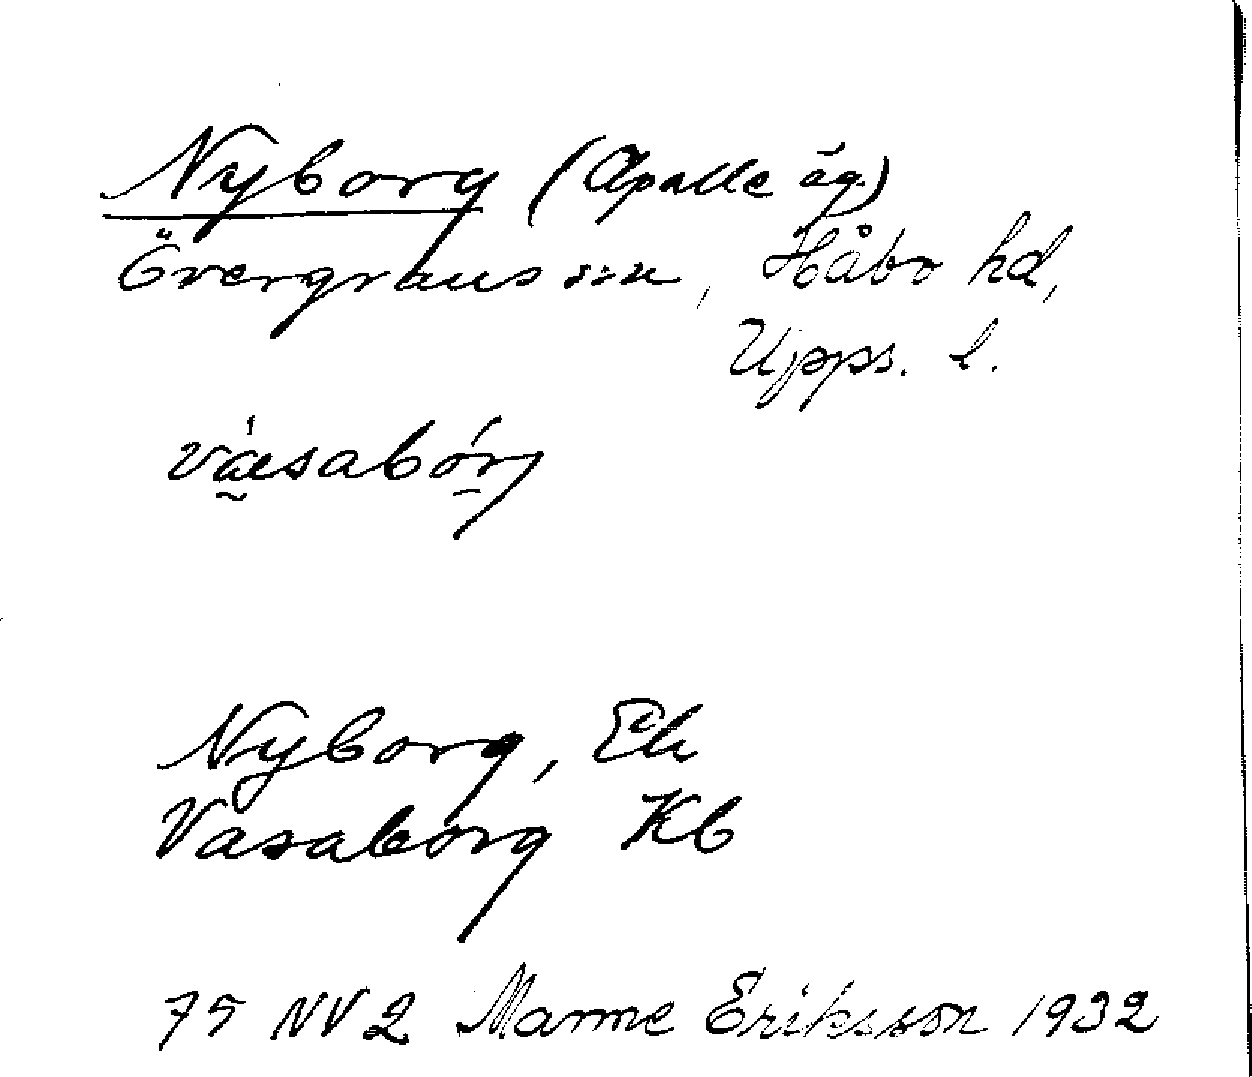 Nyborg (Apalle äg.)
Övergrans sn, Håbo hd,
Upps. l.
Nyborg, Ek
Vasaborg Kb
75 NV 2 Manne Eriksson 1932